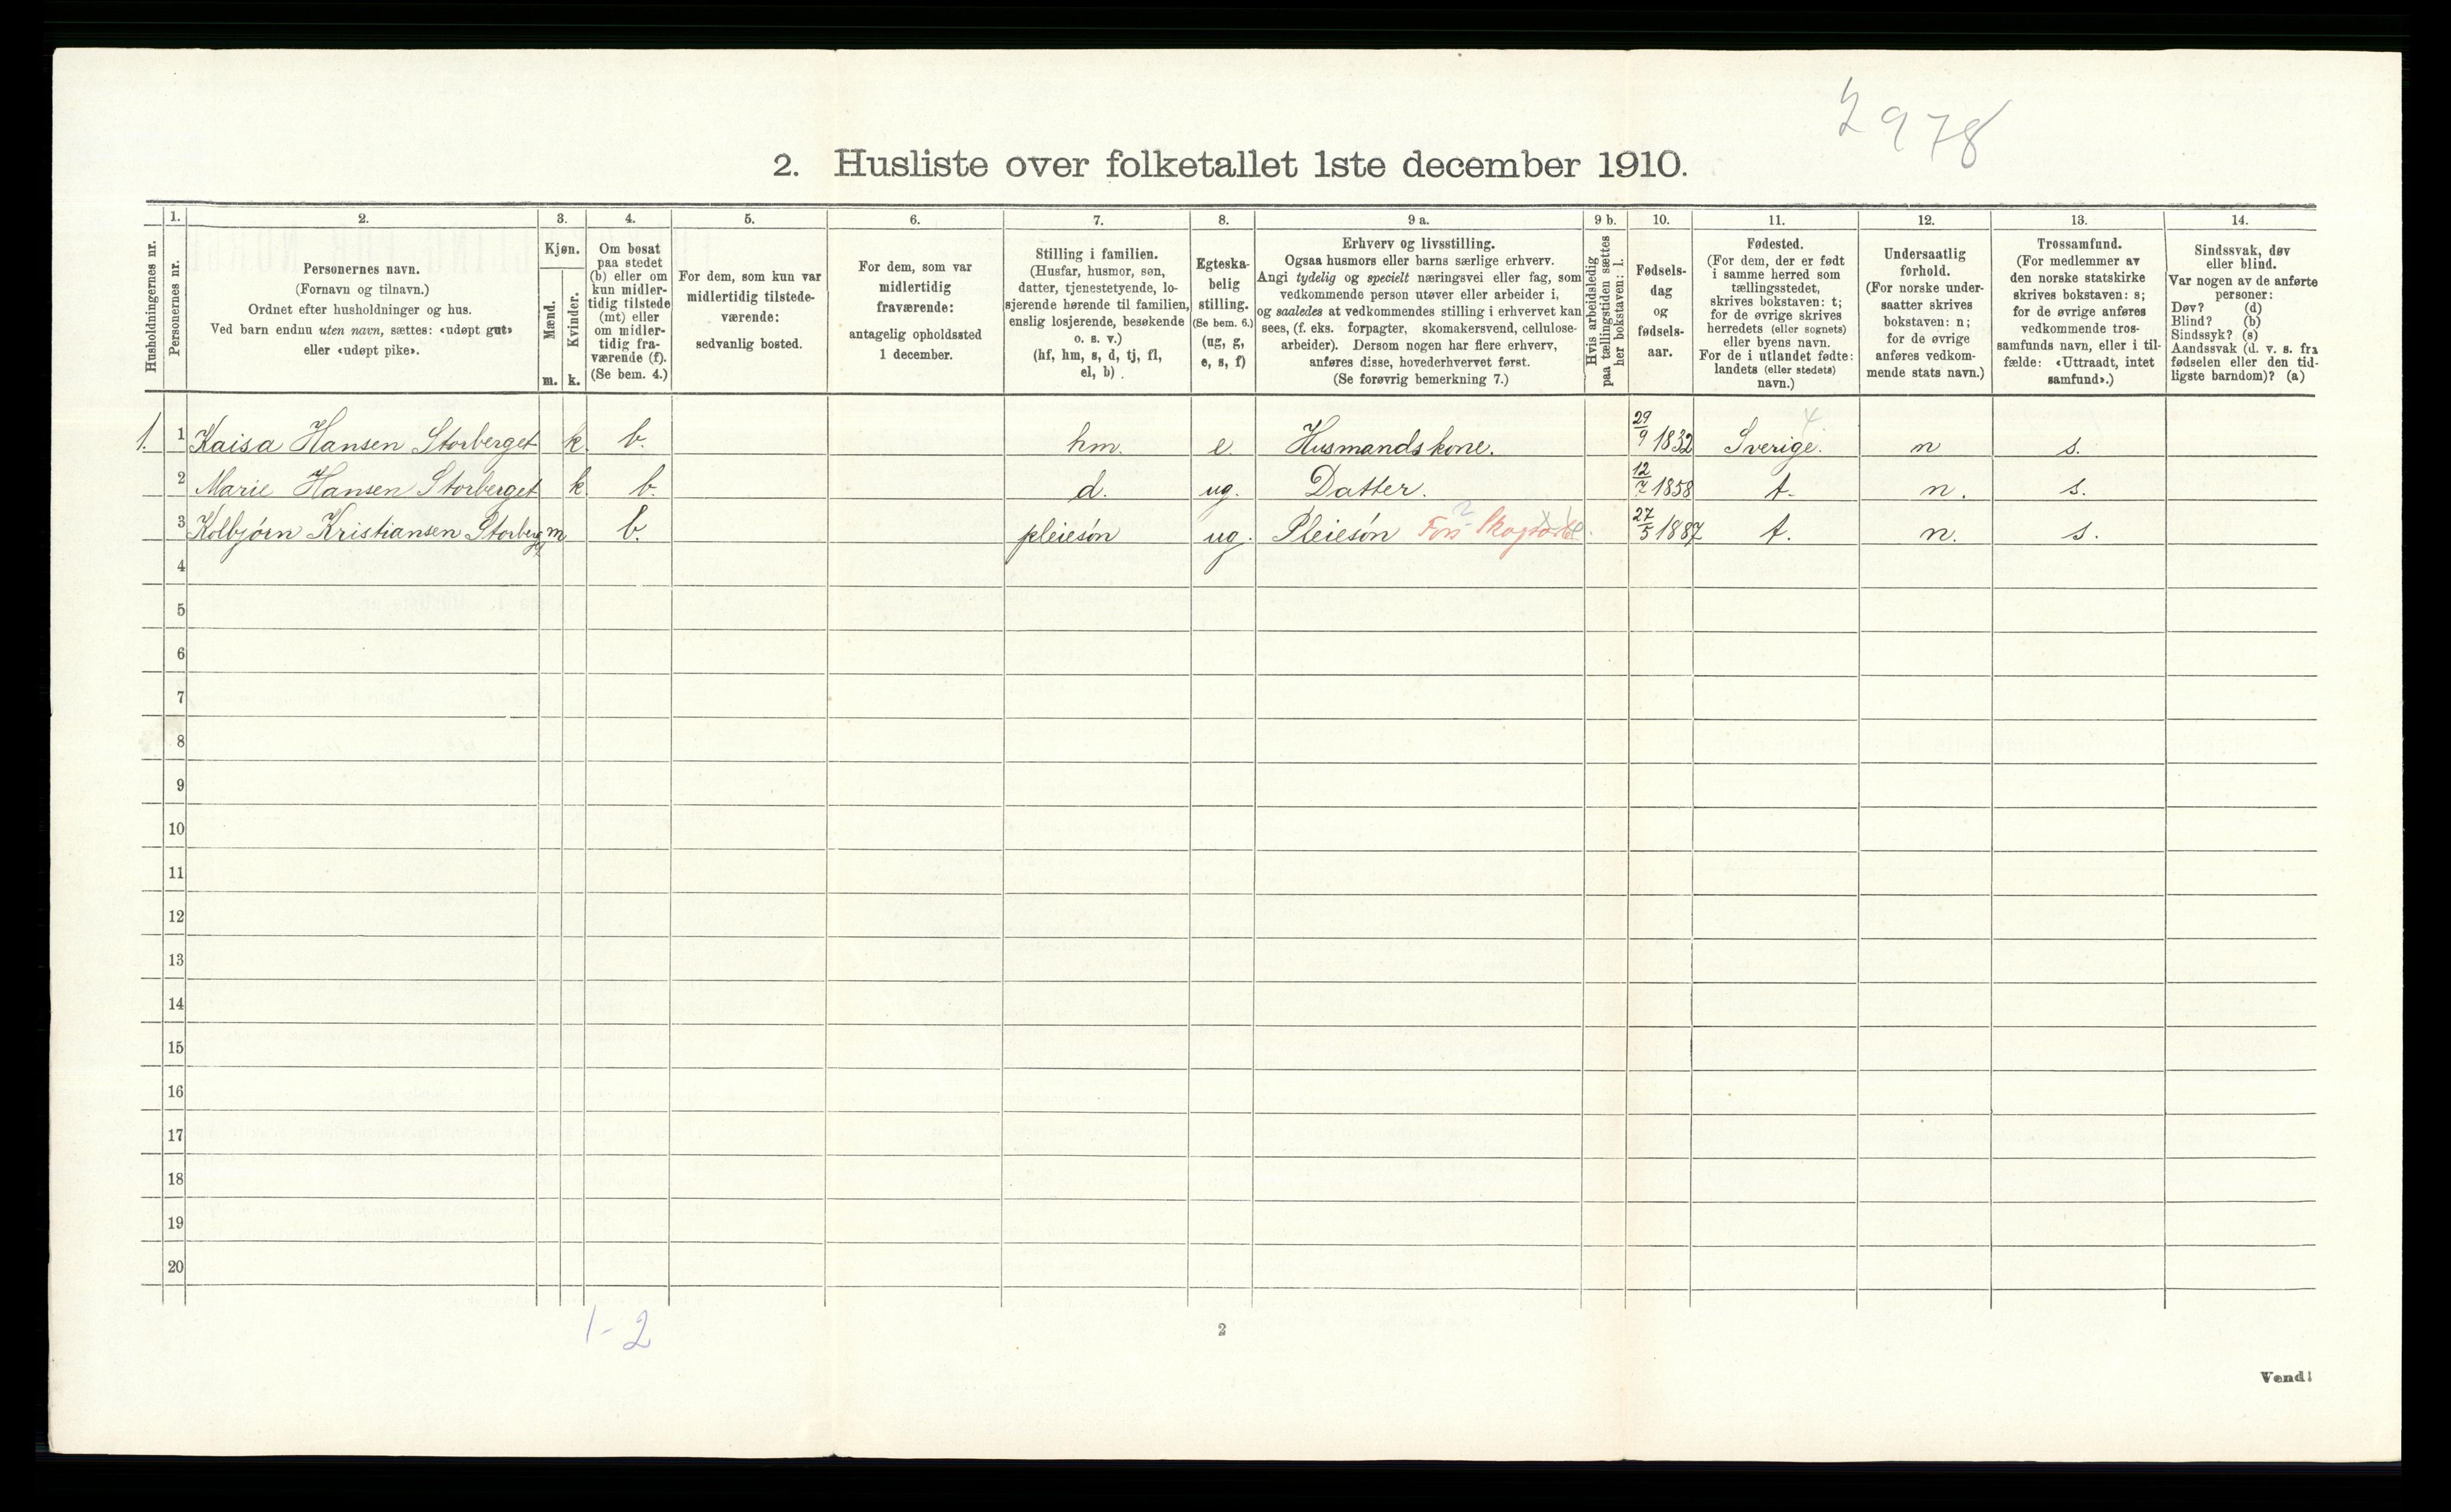 2978
2. Husliste over folketallet 1ste december 1910.
Husholdningernes nr.
1.
Personernes nr.
2.
Personernes navn.
(Fornavn og tilnavn.)
Ordnet efter husholdninger og hus.
Ved barn endnu uten navn, sættes: «udøpt gut»
eller «udøpt pike».
3.
Kjøn.
Mænd.
Kvinder.
m. k.
4.
Om bosat
paa stedet
(b) eller om
kun midler-
tidig tilstede
(mt) eller
om midler-
tidig fra-
værende (f).
(Se bem. 4.)
5.
For dem, som kun var
midlertidig tilstede-
værende:
sedvanlig bosted.
6.
For dem, som var
midlertidig
fraværende:
antagelig opholdssted
1 december.
7.
Stilling i familien.
(Husfar, husmor, søn,
datter, tjenestetyende, lo-
sjerende hørende til familien,
enslig losjerende, besøkende
o. s. v.)
(hf, hm, s, d, tj, fl,
el, b) .
8.
Egteska-
belig
stilling.
(Se bem. 6.)
(ug, g,
e, s, f)
9 a.
Erhverv og livsstilling.
Ogsaa husmors eller barns særlige erhverv.
Angi tydelig og specielt næringsvei eller fag, som
vedkommende person utøver eller arbeider i,
og saaledes at vedkommendes stilling i erhvervet kan
sees, (f. eks. forpagter, skomakersvend, cellulose-
arbeider). Dersom nogen har flere erhverv,
anføres disse, hovederhvervet først.
(Se forøvrig bemerkning 7.)
9 b.
Hvis arbeidsledig
paa tællingstiden sættes
her bokstaven: l.
10.
Fødsels-
dag
og
fødsels-
aar.
11.
Fødested.
(For dem, der er født
i samme herred som
tællingsstedet,
skrives bokstaven: t;
for de øvrige skrives
herredets (eller sognets)
eller byens navn.
For de i utlandet fødte:
landets (eller stedets)
navn.)
12.
Undersaatlig
forhold.
(For norske under-
saatter skrives
bokstaven: n;
for de øvrige
anføres vedkom-
mende stats navn.)
13.
Trossamfund.
(For medlemmer av
den norske statskirke
skrives bokstaven: s;
for de øvrige anføres
vedkommende tros-
samfunds navn, eller i til-
fælde: «Uttraadt, intet
samfund».)
14.
Sindssvak, døv
eller blind.
Var nogen av de anførte
personer:
Døv? (d)
Blind? (b)
Sindssyk? (s)
Aandssvak (d. v. s. fra
fødselen eller den tid-
ligste barndom)? (a)
1. 1 Kaisa Hansen Storberget k. b. hm. e. Husmandskone. 29/9 1832 Sverige. n s.
2 Marie Hansen Storberget k. b. d. ug. Datter. 12/7 1858 t. n. s.
3 Kolbjørn Kristiansen Storberget m b. pleiesøn ug. Pleiesøn 27/5 1887 t. n. s.
4
5
6
7
8
9
10
11
12
13
14
15
16
17
18
19
20
1-2
2
Vend!